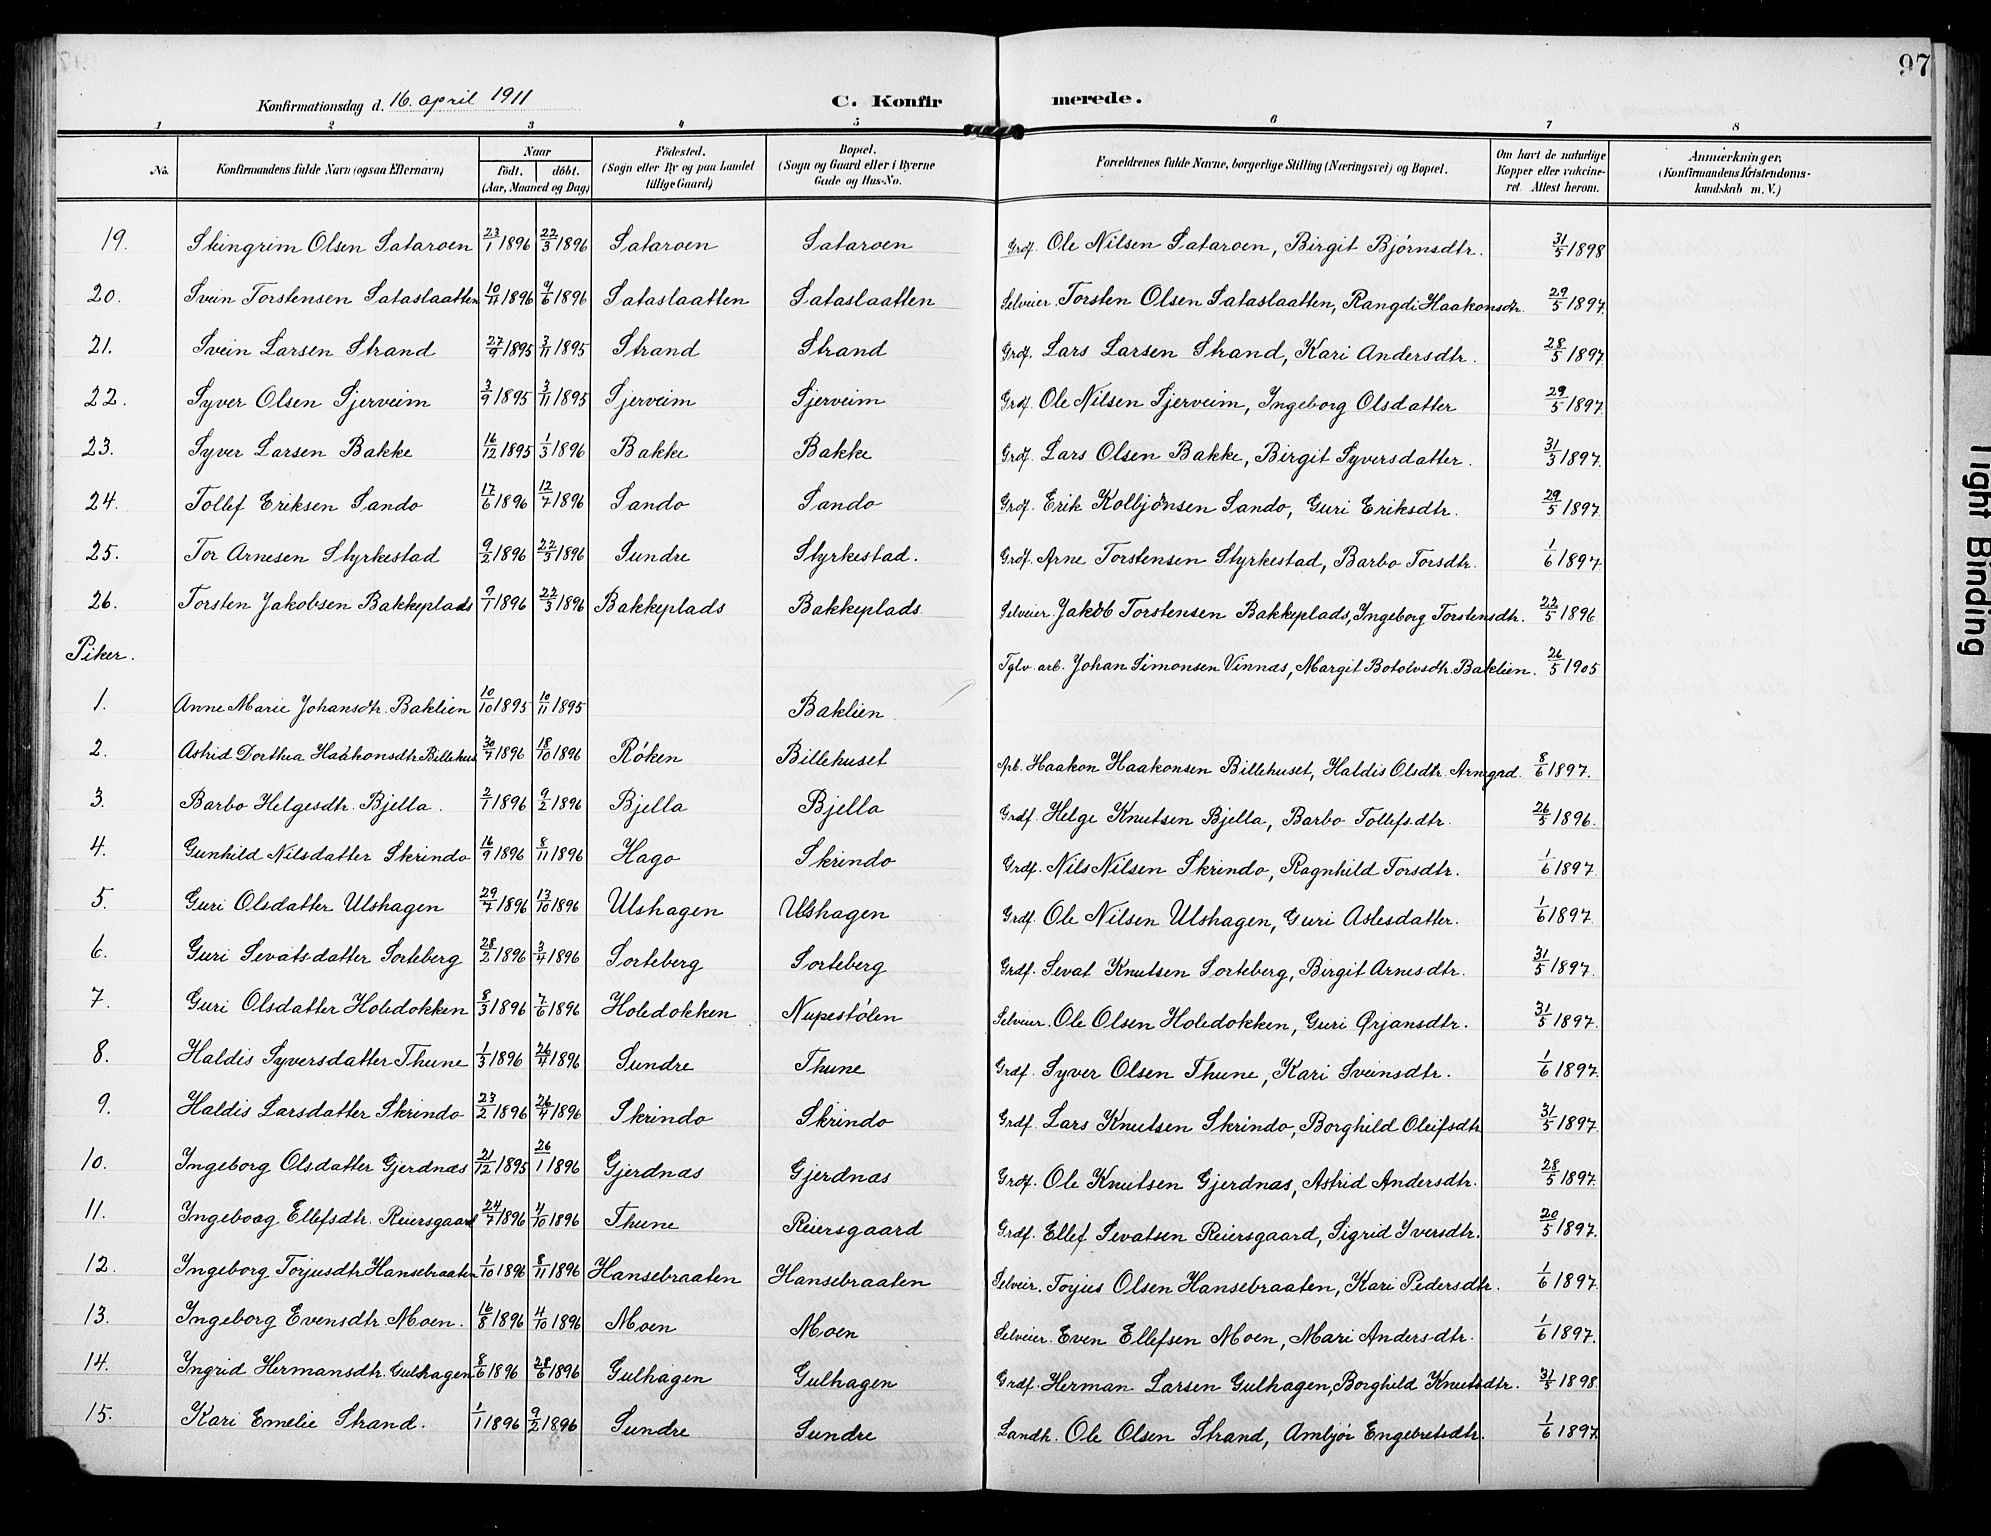 97
Konfirmationsdag d. 16. april 1911 C. Konfirmerede.
1 2 3 4 5 6 7 8
No. Konfirmandens fulde Navn (ogsaa Efternavn) Naar født. døbt. (Aar, Maaned og Dag) Fødested. (Sogn eller By og paa Landet tillige Gaard) Bopæl. (Sogn og Gaard eller i Byerne Gade og Hus-No. Forældrenes fulde Navne, borgerlige Stilling (Næringsvei) og Bopæl. Om havt de naturlige Kopper eller vakcineret. Attest herom. Anmærkninger. (Konfirmandens Kristendomskundskab m. V.)
19. Skingrim Olsen Sataroen 23/1 1896 22/3 1896 Sataroen Sataroen Grdf. Ole Nilsen Sataroen, Birgit Bjørnsdtr. 31/5 1898
20. Svein Torstensen Sataslaatten 10/4 1896 9/6 1896 Sataslaatten Sataslaatten Selveier. Torsten Olsen Sataslaatten, Rangdi Haakonsdtr. 29/5 1897.
21. Svein Larsen Strand 27/9 1895 3/11 1895 Strand Strand Grdf. Lars Larsen Strand, Kari Andersdtr. 28/5 1897.
22. Syver Olsen Sjerveim 3/9 1895 3/11 1895 Sjerveim Sjerveim Grdf. Ole Nilsen Sjerveim, Ingeborg Olsdatter 29/5 1897
23. Syver Larsen Bakke 16/12 1895 1/3 1896 Bakke Bakke Grdf. Lars Olsen Bakke, Birgit Syversdatter. 31/3 1897.
24. Tollef Eriksen Sando 17/6 1896 12/7 1896 Sando Sando Grdf. Erik Kolbjørnsen Sando, Guri Eriksdtr. 29/5 1897.
25. Tor Arnesen Styrkestad 9/2 1896 22/3 1896 Sundre Styrkestad. Grdf. Arne Torstensen Styrkestad, Barbo Torsdtr. 1/6 1897.
26. Torsten Jakobsen Bakkeplads 9/1 1896 22/3 1896 Bakkeplads Bakkeplads. Selveier. Jakob Torstensen Bakkeplads, Ingeborg Torstensdtr. 22/5 1896.
Piker. Tglv. arb. Johan Simonsen Vinnas, Margit Botolvsdtr. Baklien. 26/5 1905
1. Anne Marie Johansdtr. Baklien 10/10 1895 10/11 1895 Baklien
2. Astrid Dorthea Haakonsdtr. Billehus 30/7 1896 18/10 1896 Røken Billehuset Arb. Haakon Haakonsen Billehuset, Haldis Olsdtr. Arnegrd. 8/6 1897.
3. Barbo Helgesdtr. Bjella. 2/1 1896 9/2 1896 Bjella Bjella Grdf. Helge Knutsen Bjella, Barbo Tollefsdtr. 26/5 1896.
4. Gunhild Nilsdatter Skrindo 16/9 1896 8/11 1896 Hago Skrindo Grdf. Nils Nilsen Skrindo, Ragnhild Torsdtr. 1/6 1897.
5. Guri Olsdatter Ulshagen 29/7 1896 13/10 1896 Ulshagen Ulshagen Grdf. Ole Nilsen Ulshagen, Guri Aslesdatter. 1/6 1897.
6. Guri Sevatsdatter Sorteberg 28/2 1896 3/4 1896 Sorteberg Sorteberg Grdf. Sevat Knutsen Sorteberg, Birgit Arnesdtr. 31/5 1897.
7. Guri Olsdatter Holedokken 8/3 1896 7/6 1896 Holedokken Nupestølen Selveier. Ole Olsen Holedokken, Guri Ørjansdtr. 31/5 1897.
8. Haldis Syversdatter Thune 1/3 1896 26/4 1896 Sundre Thune Grdf. Syver Olsen Thune, Kari Sveinsdtr. 1/6 1897.
9. Haldis Larsdatter Skrindo 23/2 1896 26/4 1896 Skrindo Skrindo Grdf. Lars Knutsen Skrindo, Borghild Oleifsdtr 31/5 1897.
10. Ingeborg Olsdatter Gjerdnas 21/12 1895 26/1 1896 Gjerdnas Gjerdnas Grdf. Ole Knutsen Gjerdnas, Astrid Andersdtr. 28/5 1897.
11. Ingeborg Ellefsdtr. Reiersgaard 24/7 1896 4/10 1896 Thune Reiersgaard Grdf. Ellef Sevatsen Reiersgaard, Sigrid Iversdtr. 20/5 1897.
12. Ingeborg Torjusdtr. Hansebraaten 1/10 1896 8/11 1896 Hansebraaten Hansebraaten Selveir. Torjus Olsen Hansebraaten, Kari Pedersdtr. 1/6 1897.
13. Ingeborg Evensdtr. Moen. 16/8 1896 4/10 1896 Moen Moen Selveier. Even Ellefsen Moen, Mari Andersdtr. 1/6 1897.
14. Ingrid Hermansdtr. Gulhagen 8/6 1896 28/6 1896 Gulhagen Gulhagen Grdf. Herman Larsen Gulhagen, Borghild Knutsdtr. 31/5 1898.
15. Kari Emelie Strand. 1/1 1896 9/2 1896 Sundre Sundre Landh. Ole Olsen Strand, Ambjør Engebretsdtr. 1/6 1897
Tight Binding